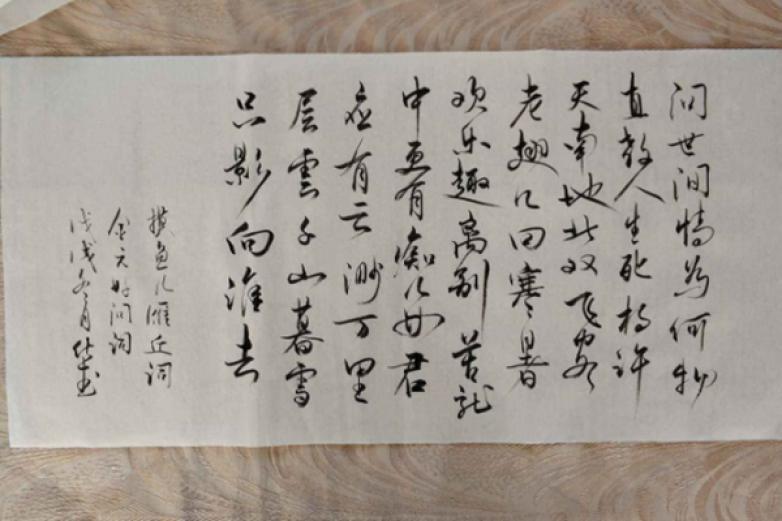 问世间情为何物
直教人生死相许
天南地北双飞客
老翅几回寒暑
欢乐趣离别苦就
中更有痴儿女君
应有云渺万里
层云千山暮雪
只影向谁去
摸鱼儿雁丘词
金元好问词
戊戌冬月